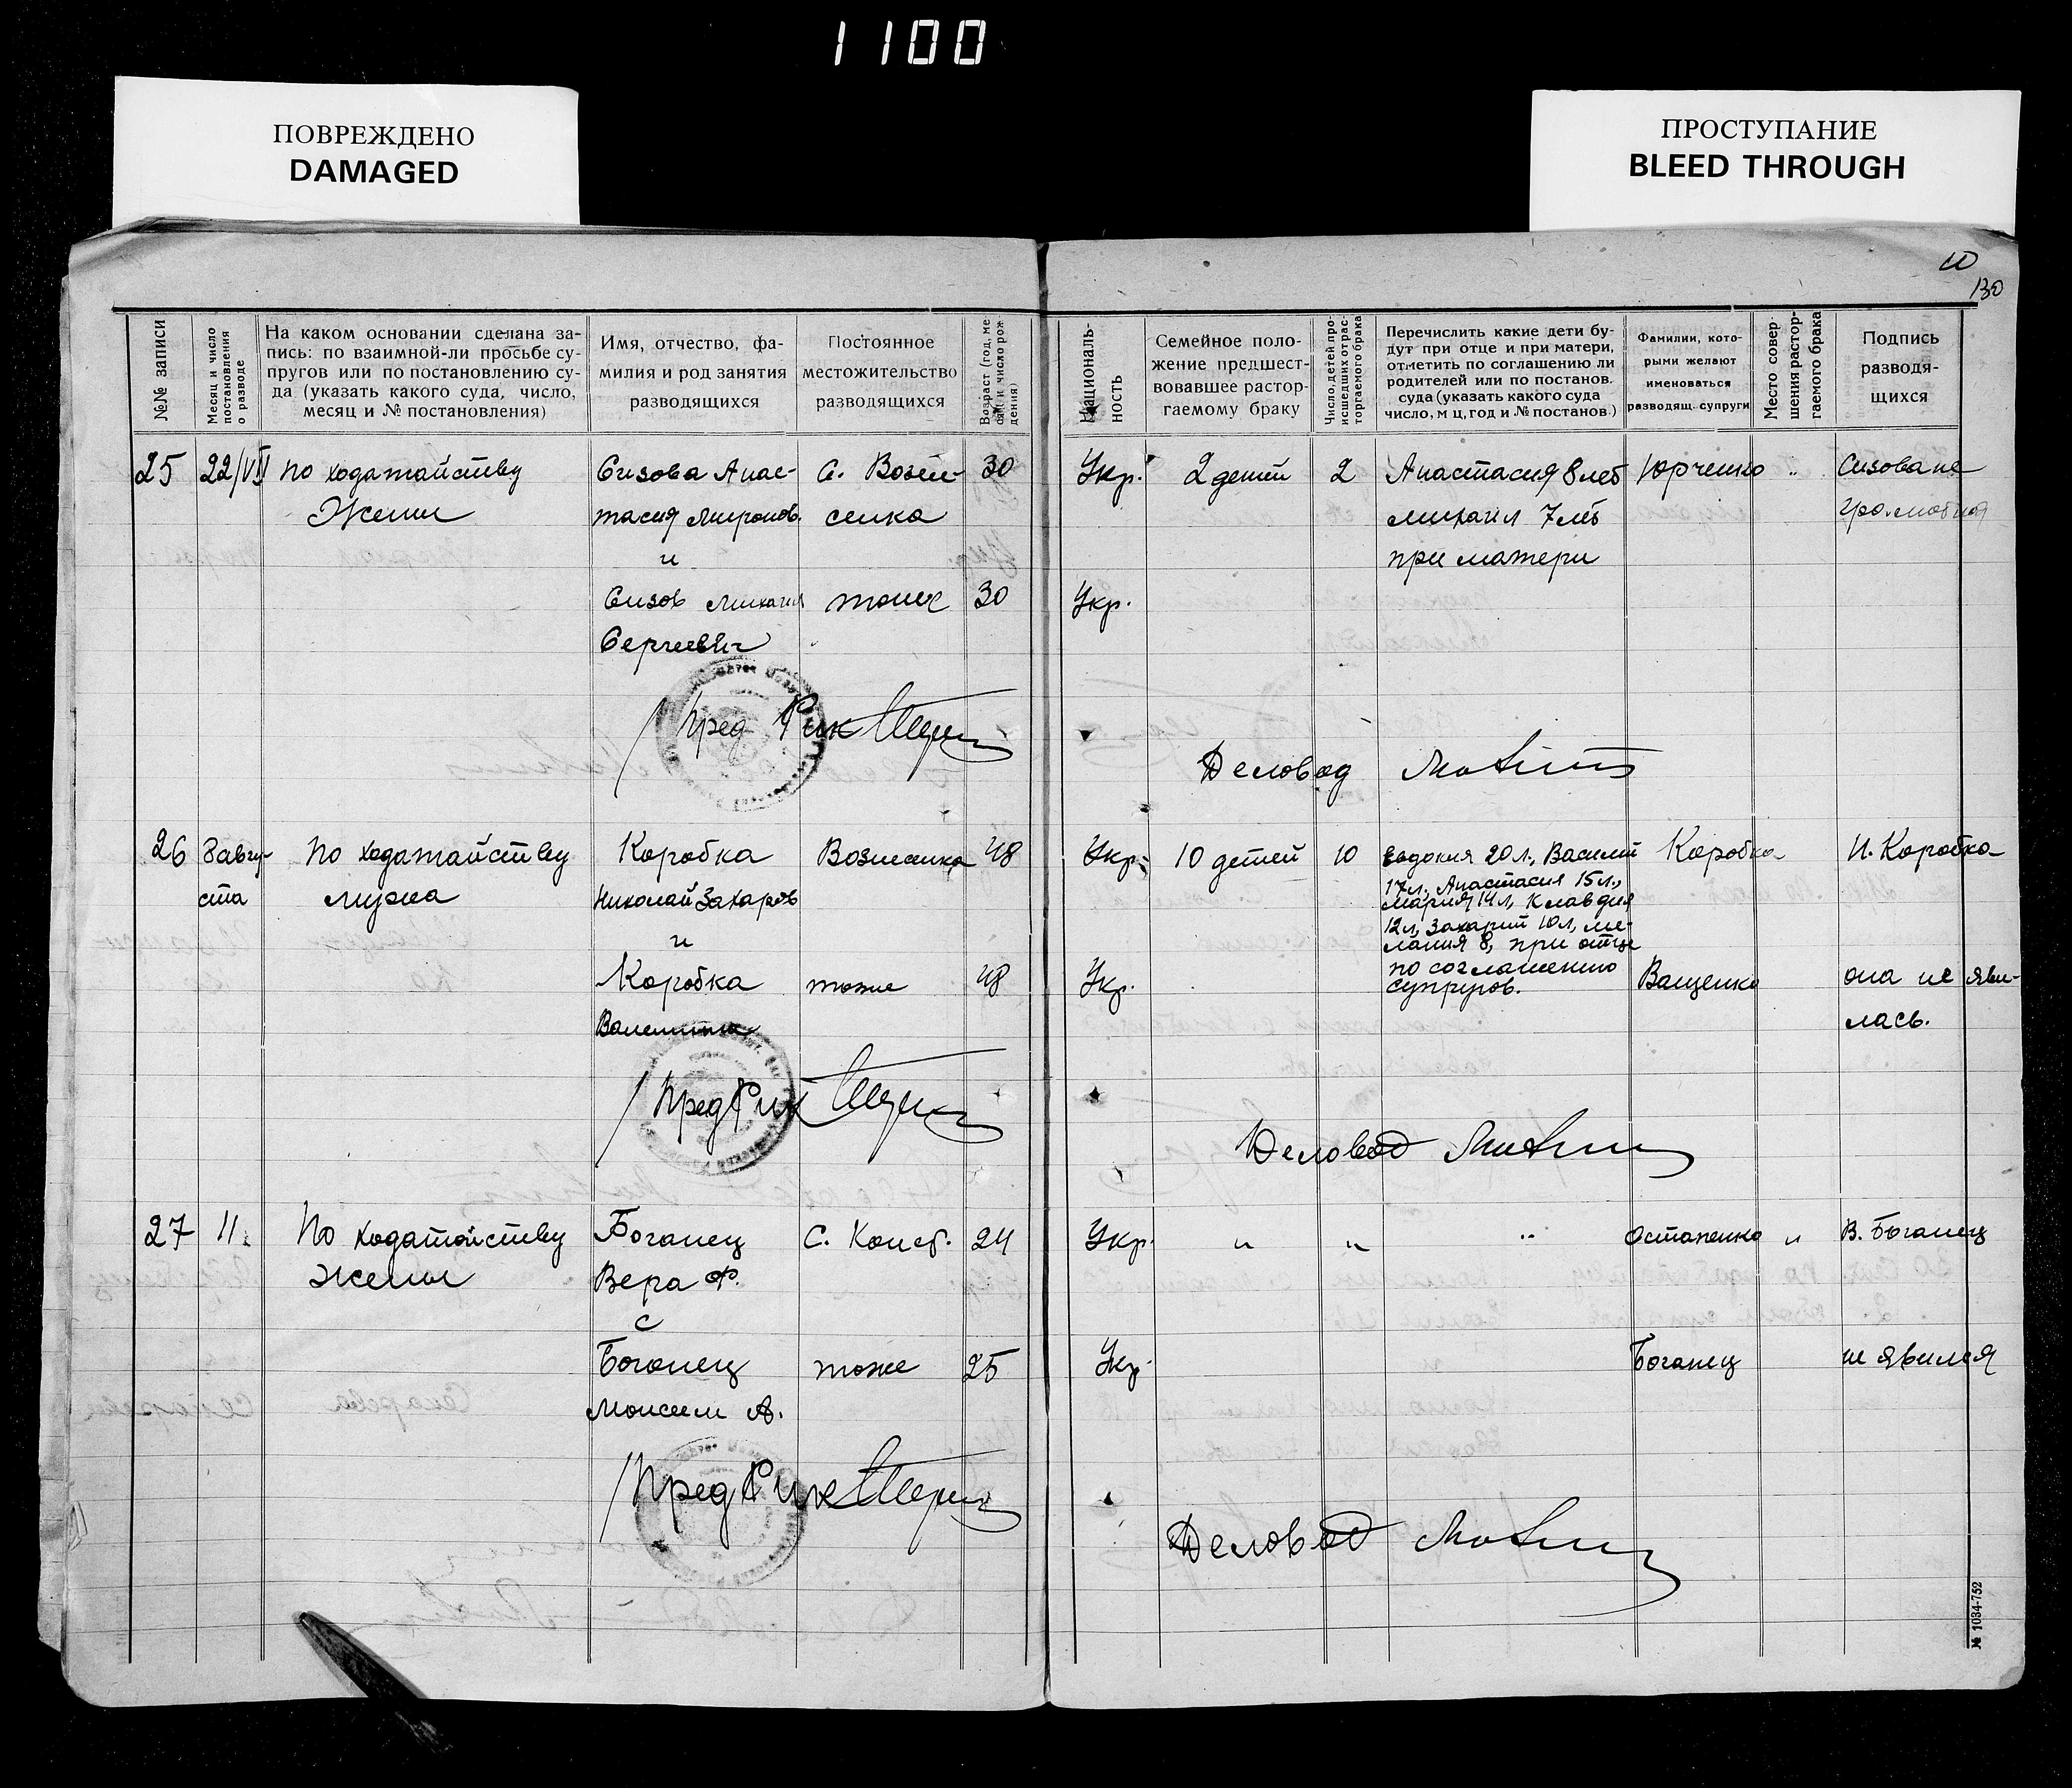 1100
ПОВРЕЖДЕНО
DAMAGED
ПРОСТУПАНИЕ
BLEED THROUGH
130
№№ записи
Месяц и число постановления о разводе
На каком основании сделана за-
пись: по взаимной-ли просьбе су-
пругов или по постановлению су-
да (указать какого суда, число,
месяц и № постановления)
Имя, отчество, фа-
милия и род занятия
разводящихся
Постоянное
местожительство
разводящихся
Возраст (год, ме
сяц и число рож
дения)
Националь-
ность
Семейное поло-
жение предшест-
вовавшее растор-
гаемому браку
Число детей про-
исшедших от рас-
торгаемого брака
Перечислить какие дети бу-
дут при отце и при матери,
отметить по соглашению ли
родителей или по постанов.
суда (указать какого суда
число, м ц, год и № постанов.)
Фамилии, кото-
рыми желают
именоваться
разводящ. супруги
Место совер-
шения растор-
гаемого брака
Подпись
разводя-
щихся
25 22/VII по ходатайству
Жены
Сизова Анас-
тасия Миронов.
и
Сизов Михаил
Сергеевич
с. Возне-
сенка
тоже
30
30
Укр.
Укр.
2 детей
2
Анастасия 8 лет
михаил 7 лет
при матери
Юрченко
"
Сизова не
грамотная
Пред Рик
Деловод
26 8 авгу-
ста
По ходатайству
мужа
Коробка
Николай Захаров
и
Коробка
Валентина
Вознесенка
тоже
48
48
Укр.
Укр.
10 детей
10
Евдокия 20 л., Василий
17 л., Анастасия 15 л.,
Мария 14 л, Клавдия
12 л, Захарий 10 л, ме-
лания 8, при отце
по соглашению
супругов.
Коробка
Ващенко
Н. Коробка
она не яви-
лась.
Пред Рик
Деловод
27 11.
По ходатайству
Жены
Боганец
Вера Ф.
с
Боганец
Моисей А.
С. Конст.
тоже
24
25
Укр.
Укр.
"
"
"
Остапенко
Боганец
"
В. Боганец
не явился
Пред Рик
Деловод
№ 1034-752